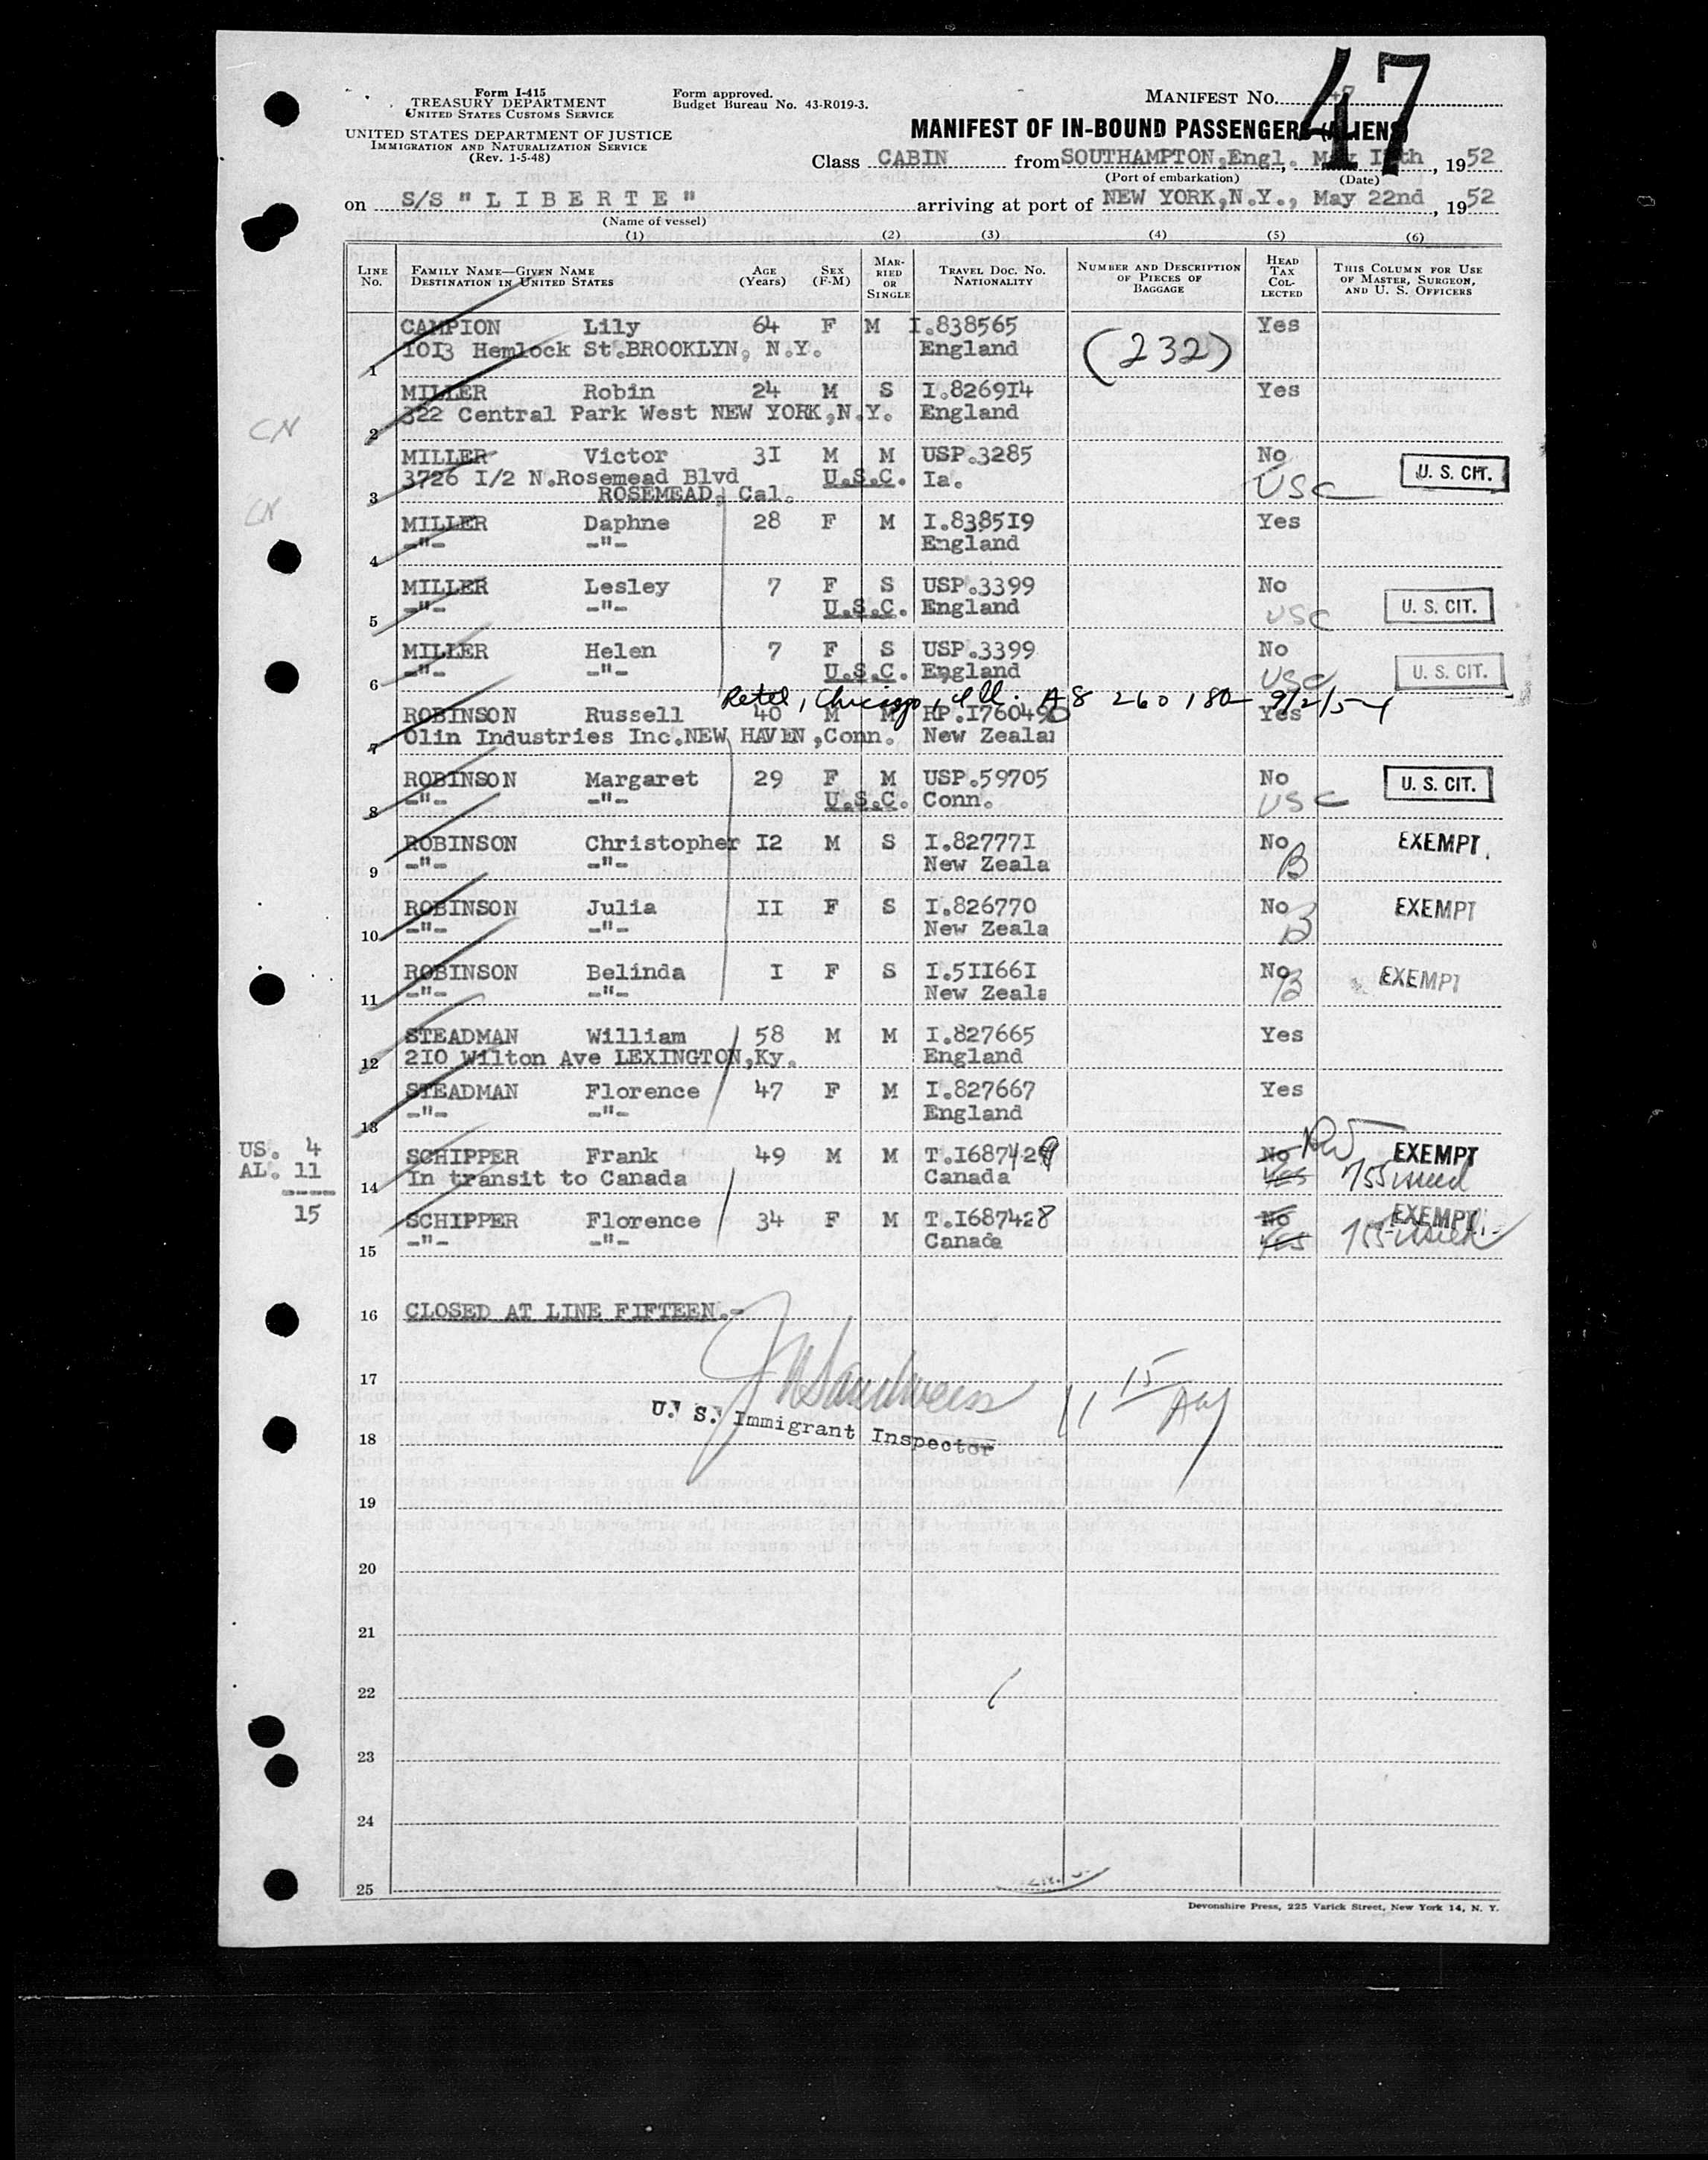 47
Form I-415
TREASURY DEPARTMENT
UNITED STATES CUSTOMS SERVICE
UNITED STATES DEPARTMENT OF JUSTICE
IMMIGRATION AND NATURALIZATION SERVICE
(Rev. 1-5-48)
Form approved.
Budget Bureau No. 43-R019-3.
MANIFEST No. 47
MANIFEST OF IN-BOUND PASSENGERS (ALIENS)
Class CABIN from SOUTHAMPTON,Engl., May th, 1952
(Port of embarkation) (Date)
on S/S "LIBERTE" arriving at port of NEW YORK,N.Y., May 22nd, 1952
(Name of vessel)
(1) (2) (3) (4) (5) (6)
LINE No. FAMILY NAME—GIVEN NAME DESTINATION IN UNITED STATES AGE (Years) SEX (F-M) MARRIED OR SINGLE TRAVEL DOC. NO. NATIONALITY NUMBER AND DESCRIPTION OF PIECES OF BAGGAGE HEAD TAX COLLECTED THIS COLUMN FOR USE OF MASTER, SURGEON, AND U. S. OFFICERS
CAMPION Lily 64 F M I.838565 Yes
1 1OI3 Hemlock St.BROOKLYN, N.Y. England (232)
MILLER Robin 24 M S I.8269I4 Yes
2 322 Central Park West NEW YORK,N.Y. England
CN
MILLER Victor 3I M M USP.3285 No
3726 I/2 N.Rosemead Blvd U.S.C. Ia. USC U. S. CIT.
3 ROSEMEAD, Cal.
CN
MILLER Daphne 28 F M I.8385I9 Yes
4 -"- -"- England
MILLER Lesley 7 F S USP.3399 No
5 -"- -"- U.S.C. England USC U. S. CIT.
MILLER Helen 7 F S USP.3399 No
6 -"- -"- U.S.C. England USC U. S. CIT.
Chicago, Ill. A8 260 180
ROBINSON Russell 40 M M RP.I760490 Yes
7 Olin Industries Inc.NEW HAVEN,Conn. New Zeala
ROBINSON Margaret 29 F M USP.59705 No
8 -"- -"- U.S.C. Conn. USC U. S. CIT.
ROBINSON Christopher I2 M S I.82777I No EXEMPT
9 -"- -"- New Zeala B
ROBINSON Julia II F S I.826770 No EXEMPT
10 -"- -"- New Zeala B
ROBINSON Belinda I F S I.5II66I No EXEMPT
11 -"- -"- New Zeala B
STEADMAN William 58 M M I.827665 Yes
12 2IO Wilton Ave LEXINGTON,Ky. England
STEADMAN Florence 47 F M I.827667 Yes
13 -"- -"- England
US. 4
AL. 11
----
15
SCHIPPER Frank 49 M M T.I687429 No EXEMPT
14 In transit to Canada Canada Yes 755 issued
SCHIPPER Florence 34 F M T.I687428 No EXEMPT
15 -"- -"- Canada Yes 755 issued
16 CLOSED AT LINE FIFTEEN.-
17
U. S. Immigrant Inspector
11 15 AM
18
19
20
21
22
23
24
25
Devonshire Press, 225 Varick Street, New York 14, N. Y.